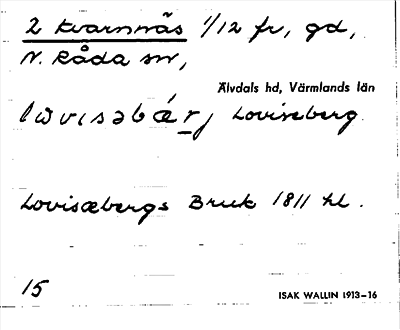 2 Kvarnnäs 1/12 fr, gd,
N. Råda sn,
Älvdals hd, Värmlands län
Loviseberg
Lovisæbergs Bruk 1811 hl.
15
ISAK WALLIN 1913–16